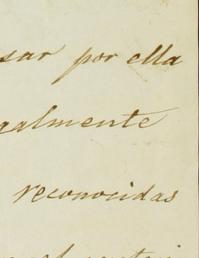 sar por ella
galmente
reconocidas